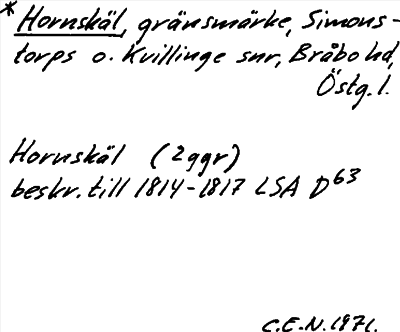 *Hornskäl, gränsmärke, Simons-
torps o. Kvillinge snr, Bråbo hd,
Östg. l.
Hornskäl (2ggr)
beskr. till 1814-1817 LSA D63
C.E.N. 1971.